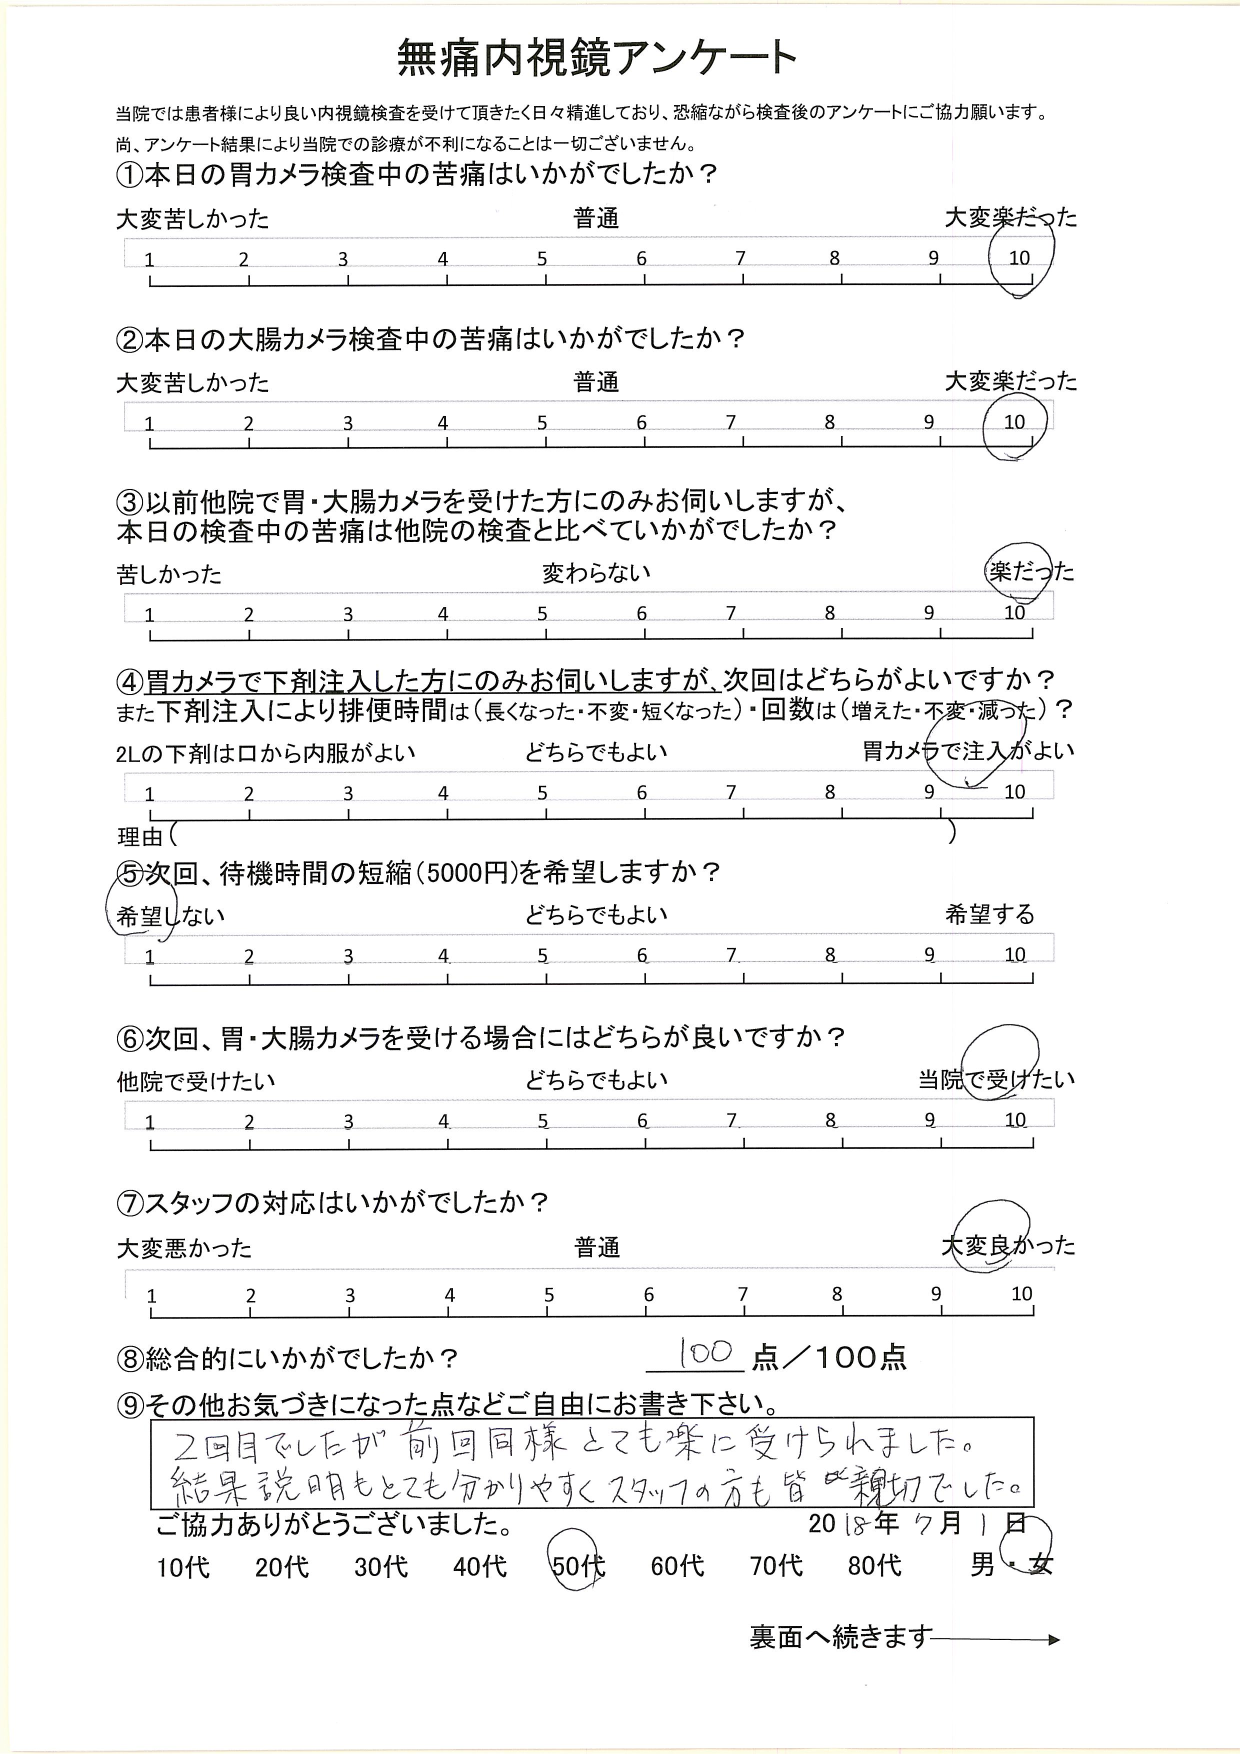 無痛内視鏡アンケート
当院では患者様により良い内視鏡検査を受けて頂きたく日々精進しており、恐縮ながら検査後のアンケートにご協力願います。
尚、アンケート結果により当院での診療が不利になることは一切ございません。
①本日の胃カメラ検査中の苦痛はいかがでしたか？
大変苦しかった 普通 大変楽だった
1 2 3 4 5 6 7 8 9 10
②本日の大腸カメラ検査中の苦痛はいかがでしたか？
大変苦しかった 普通 大変楽だった
1 2 3 4 5 6 7 8 9 10
③以前他院で胃・大腸カメラを受けた方にのみお伺いしますが、
本日の検査中の苦痛は他院の検査と比べていかがでしたか？
苦しかった 変わらない 楽だった
1 2 3 4 5 6 7 8 9 10
④胃カメラで下剤注入した方にのみお伺いしますが、次回はどちらがよいですか？
また下剤注入により排便時間は（長くなった・不変・短くなった）・回数は（増えた・不変・減った）？
2Lの下剤は口から内服がよい どちらでもよい 胃カメラで注入がよい
1 2 3 4 5 6 7 8 9 10
理由（ ）
⑤次回、待機時間の短縮（5000円）を希望しますか？
希望しない どちらでもよい 希望する
1 2 3 4 5 6 7 8 9 10
⑥次回、胃・大腸カメラを受ける場合にはどちらが良いですか？
他院で受けたい どちらでもよい 当院で受けたい
1 2 3 4 5 6 7 8 9 10
⑦スタッフの対応はいかがでしたか？
大変悪かった 普通 大変良かった
1 2 3 4 5 6 7 8 9 10
⑧総合的にいかがでしたか？ 100 点／100点
⑨その他お気づきになった点などご自由にお書き下さい。
2回目でしたが 前回同様 とても楽に受けられました。
結果説明もとても分かりやすくスタッフの方も皆 親切でした。
ご協力ありがとうございました。 2018年 7月 1日
10代 20代 30代 40代 50代 60代 70代 80代 男・女
裏面へ続きます